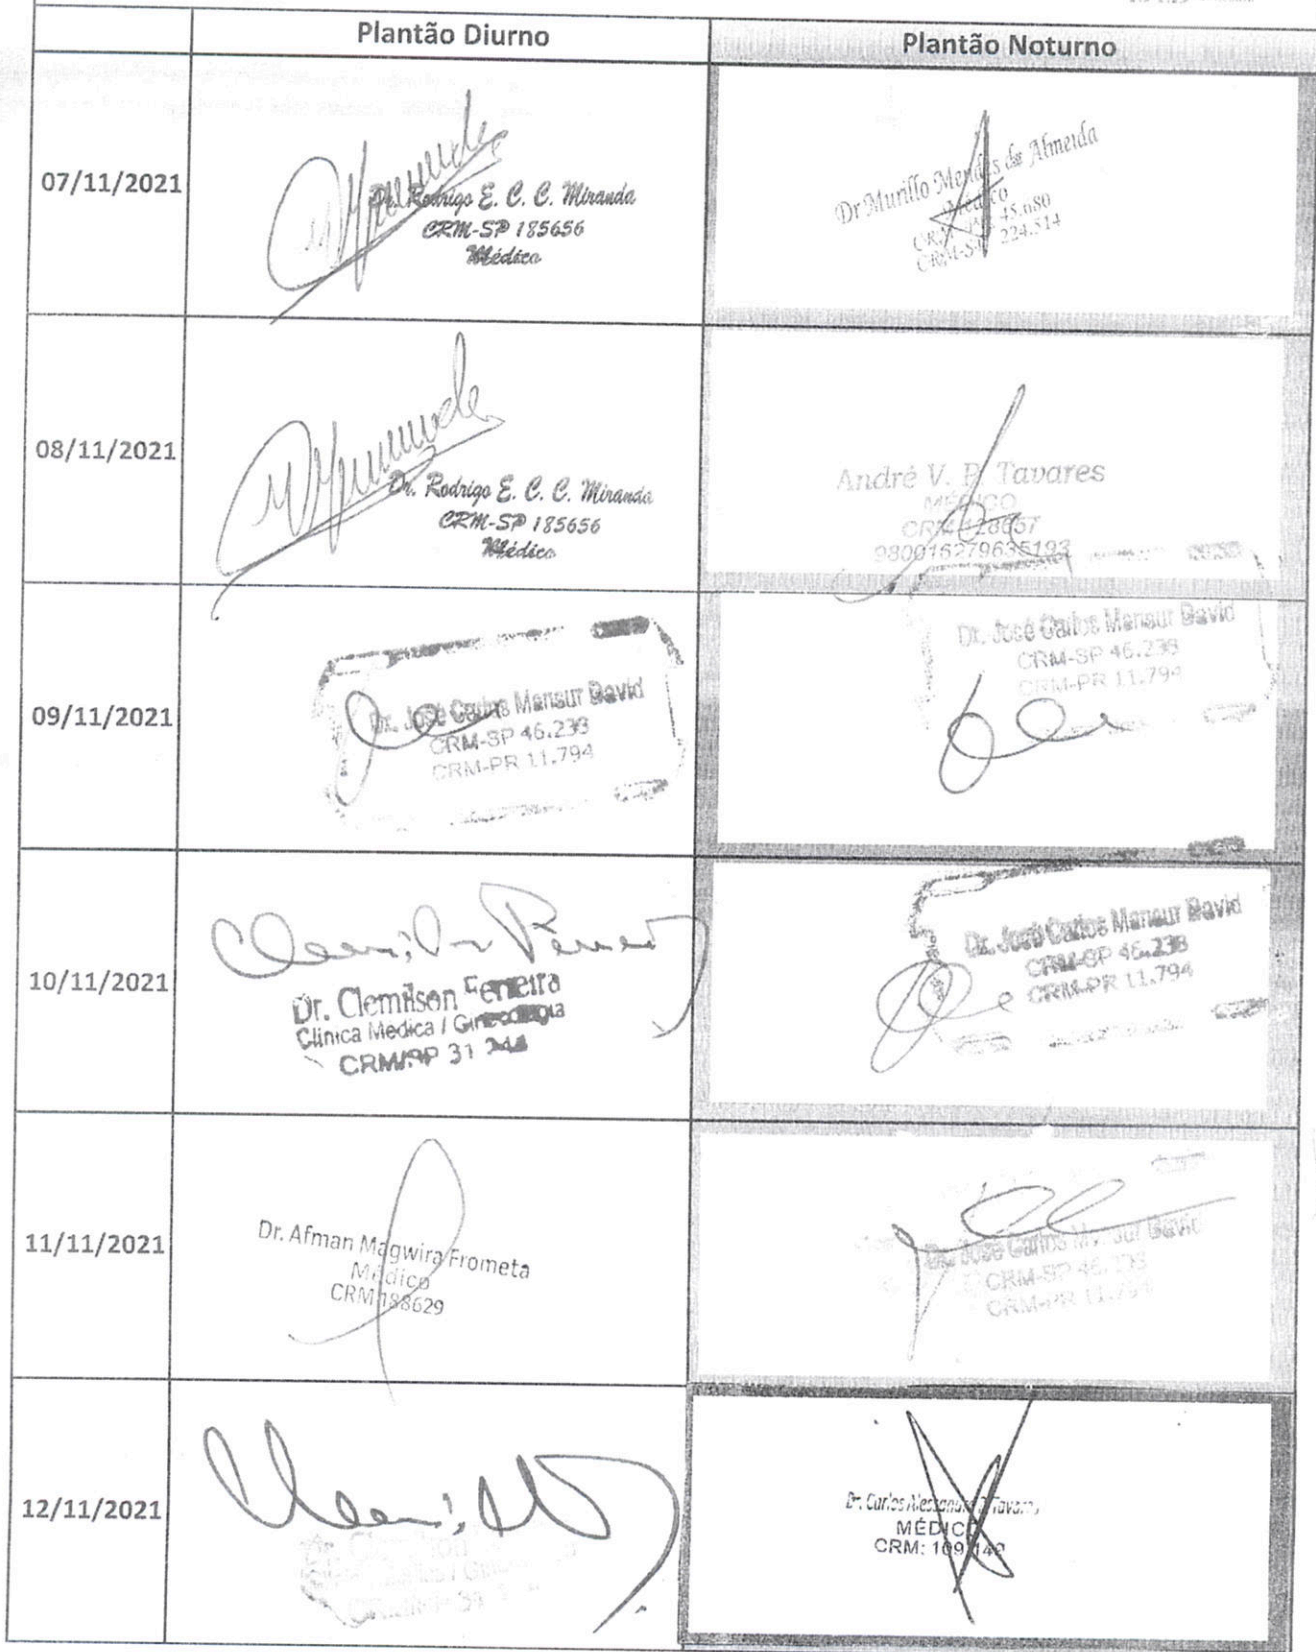 Plantão Diurno
Plantão Noturno
07/11/2021
Dr. Rodrigo E. C. C. Miranda
CRM-SP 185656
Médico
Dr Murillo Mendes de Almeida
Médico
45.080
CRM-SP 224.514
08/11/2021
Dr. Rodrigo E. C. C. Miranda
CRM-SP 185656
Médico
André V. P. Tavares
MÉDICO
CRM 128657
980016279635193
09/11/2021
Dr. José Carlos Mansur David
CRM-SP 46.238
CRM-PR 11.794
Dr. José Carlos Mansur David
CRM-SP 46.238
CRM-PR 11.794
10/11/2021
Dr. Clemilson Ferreira
Clinica Medica / Ginecologia
CRM/SP 31
Dr. José Carlos Mansur David
CRM-SP 46.238
CRM-PR 11.794
11/11/2021
Dr. Afman Magwira Frometa
Médico
CRM 188629
Dr. José Carlos Mansur David
CRM-SP 46.238
CRM-PR 11.794
12/11/2021
Dr. Clemilson
Dr. Carlos Alessandro Tavares
MÉDICO
CRM: 109